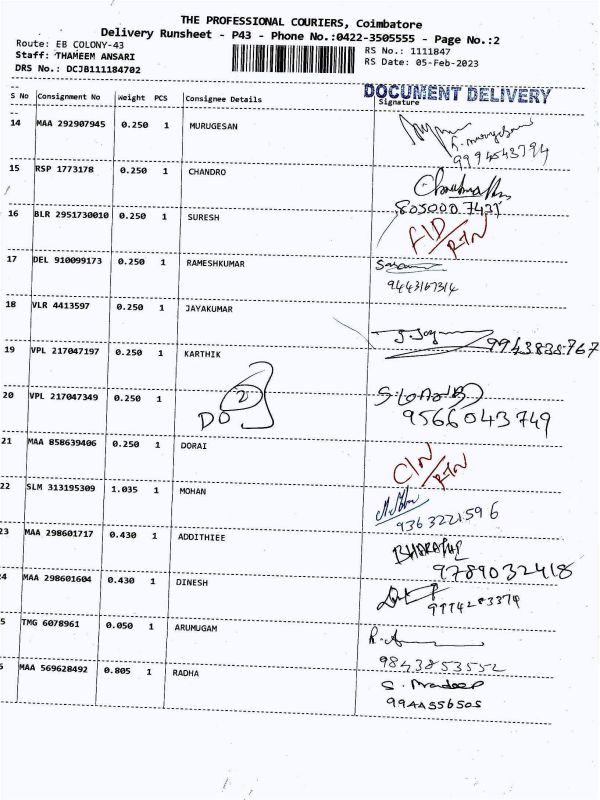 THE PROFESSIONAL COURIERS, Coimbatore
Delivery Runsheet - P43 - Phone No.:0422-3505555 - Page No.:2
Route: EB COLONY-43
RS No.: 1111847
Staff: THAMEEM ANSARI
RS Date: 05-Feb-2023
DRS No.: DCJB111184702
DOCUMENT DELIVERY
S No Consignment No Weight PCS Consignee Details Signature
14 MAA 292907945 0.250 1 MURUGESAN
9994543794
15 RSP 1773178 0.250 1 CHANDRO
8050007431
16 BLR 2951730010 0.250 1 SURESH
RTN
17 DEL 910099173 0.250 1 RAMESHKUMAR
9443167314
18 VLR 4413597 0.250 1 JAYAKUMAR
9943838767
19 VPL 217047197 0.250 1 KARTHIK
DO 2
20 VPL 217047349 0.250 1
9566043749
21 MAA 858639406 0.250 1 DORAI
RTN
22 SLM 313195309 1.035 1 MOHAN
9363221596
23 MAA 298601717 0.430 1 ADDITHIEE
9789032418
24 MAA 298601604 0.430 1 DINESH
5 TMG 6078961 0.050 1 ARUMUGAM
9843853552
MAA 569628492 0.805 1 RADHA
S. Pradeep
9944556505